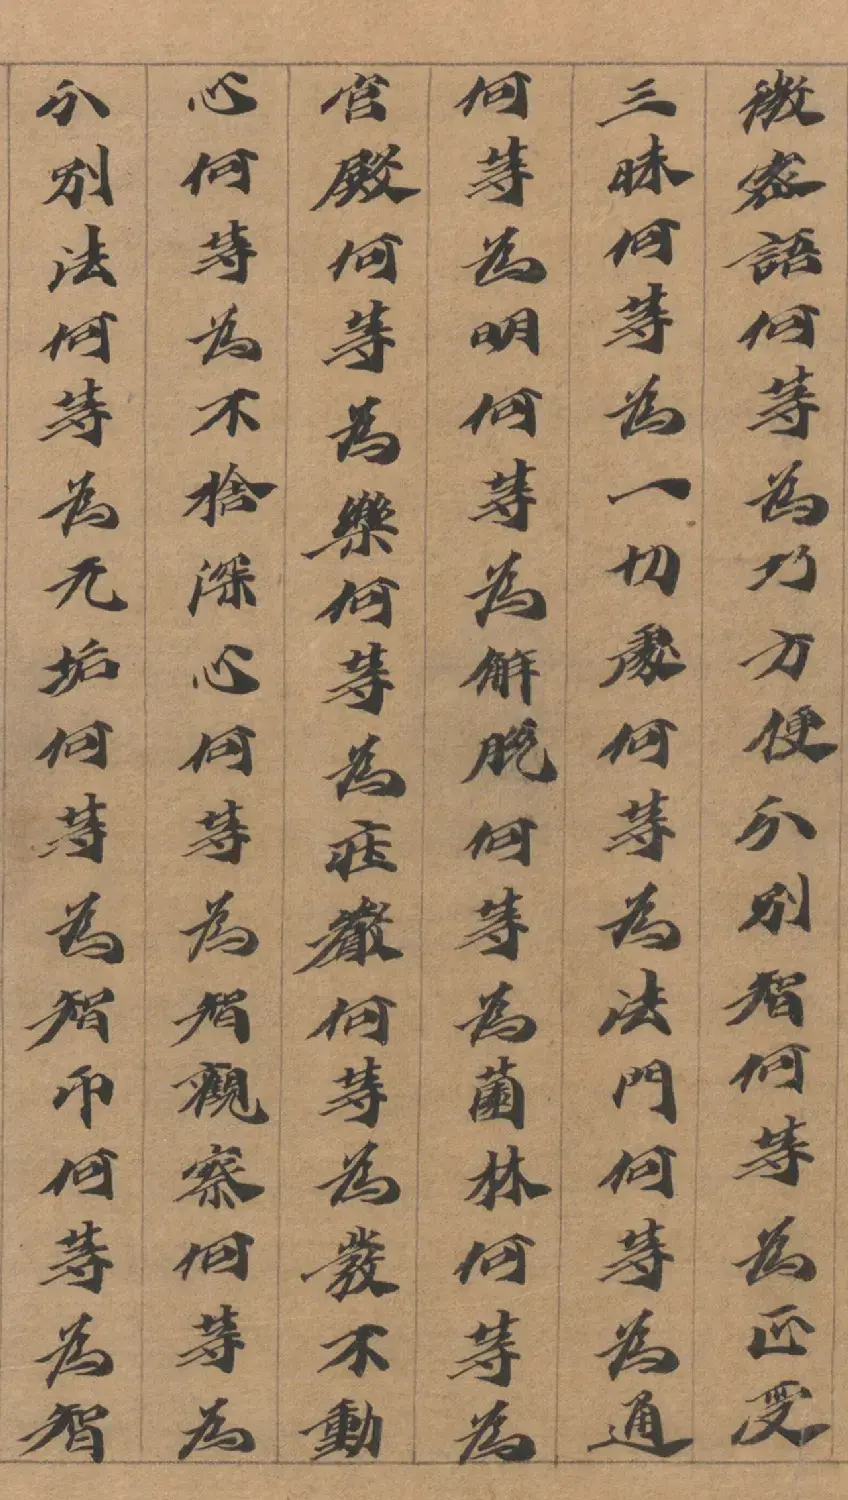 微密語何等為巧方便分別智何等為正受
三昧何等為一切處何等為法門何等為通
何等為明何等為解脫何等為薗林何等為
官殿何等為樂何等為疰嚴何等為發不動
心何等為不捨深心何等為智觀察何等為
分別法何等為无垢何等為智印何等為智